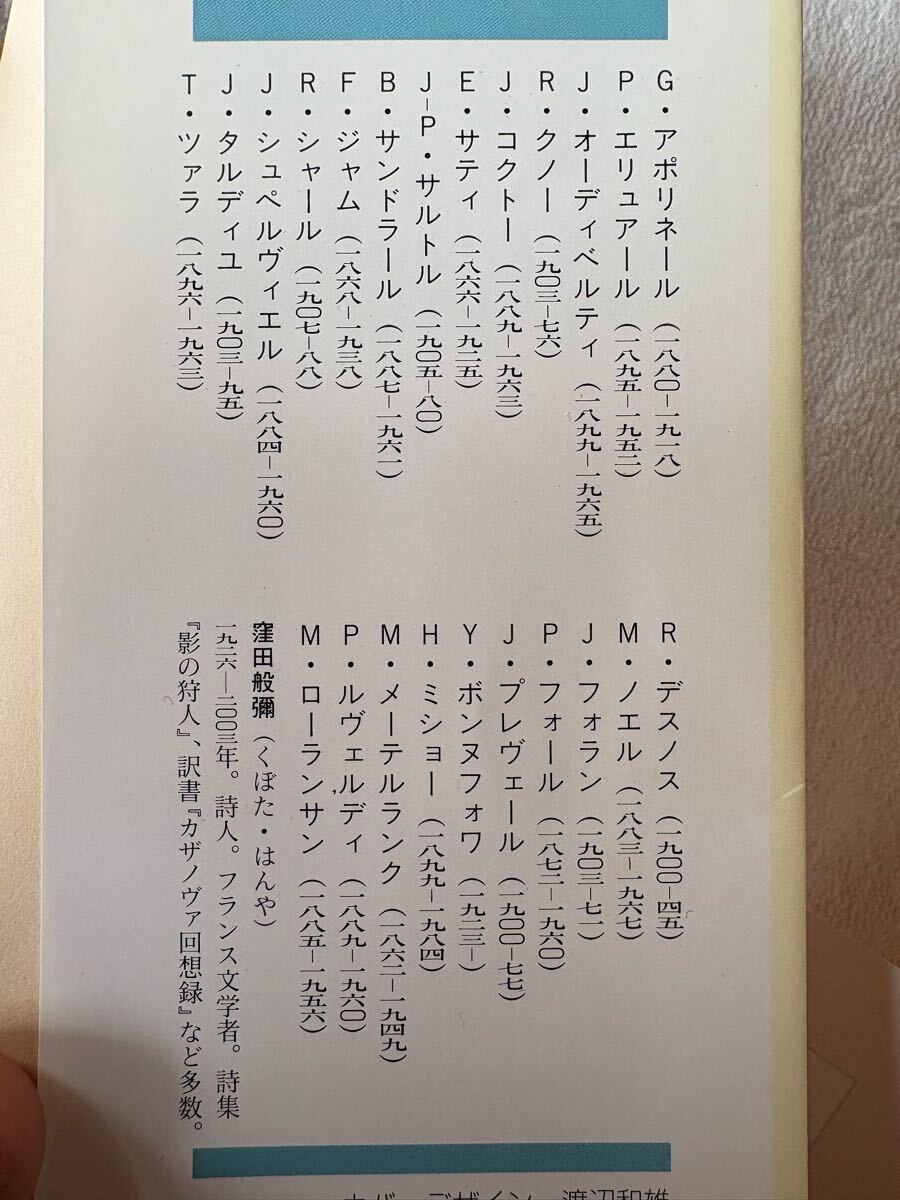 G・アポリネール（一八八〇－一九一八）
P・エリュアール（一八九五－一九五二）
J・オーディベルティ（一八九九－一九六五）
R・クノー（一九〇三－七六）
J・コクトー（一八八九－一九六三）
E・サティ（一八六六－一九二五）
J－P・サルトル（一九〇五－八〇）
B・サンドラール（一八八七－一九六一）
F・ジャム（一八六八－一九三八）
R・シャール（一九〇七－八八）
J・シュペルヴィエル（一八八四－一九六〇）
J・タルディユ（一九〇三－九五）
T・ツァラ（一八九六－一九六三）
R・デスノス（一九〇〇－四五）
M・ノエル（一八八三－一九六七）
J・フォラン（一九〇三－七一）
P・フォール（一八七二－一九六〇）
J・プレヴェール（一九〇〇－七七）
Y・ボンヌフォワ（一九二三－）
H・ミショー（一八九九－一九八四）
M・メーテルランク（一八六二－一九四九）
P・ルヴェルディ（一八八九－一九六〇）
M・ローランサン（一八八五－一九五六）
窪田般彌（くぼた・はんや）
一九二六―二〇〇三年。詩人。フランス文学者。詩集
『影の狩人』、訳書『カザノヴァ回想録』など多数。
カバーデザイン 渡辺和雄